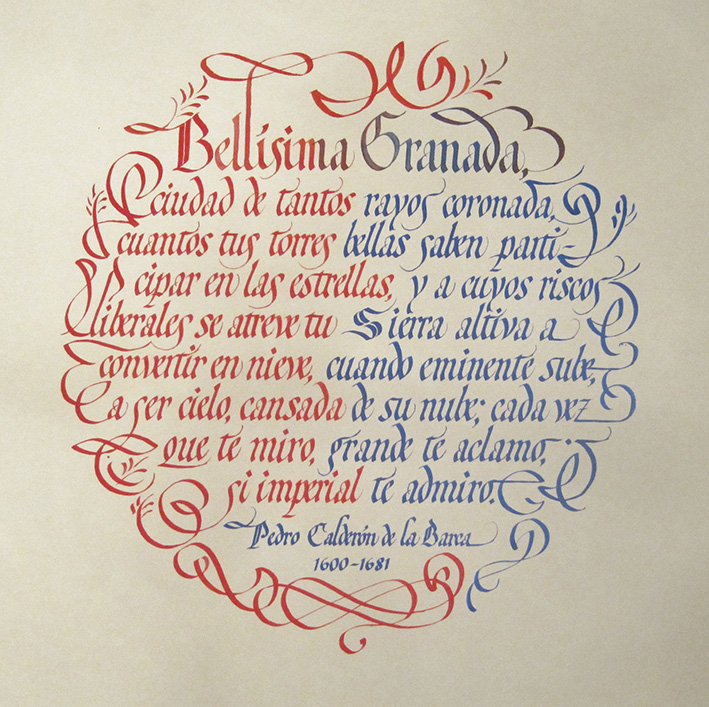 Bellísima Granada,
ciudad de tantos rayos coronada,
cuantos tus torres bellas saben parti-
cipar en las estrellas, y a cuyos riscos
liberales se atreve tu Sierra altiva a
convertir en nieve, cuando eminente sube,
a ser cielo, cansada de su nube; cada vez
que te miro, grande te aclamo,
si imperial te admiro.
Pedro Calderón de la Barca
1600-1681